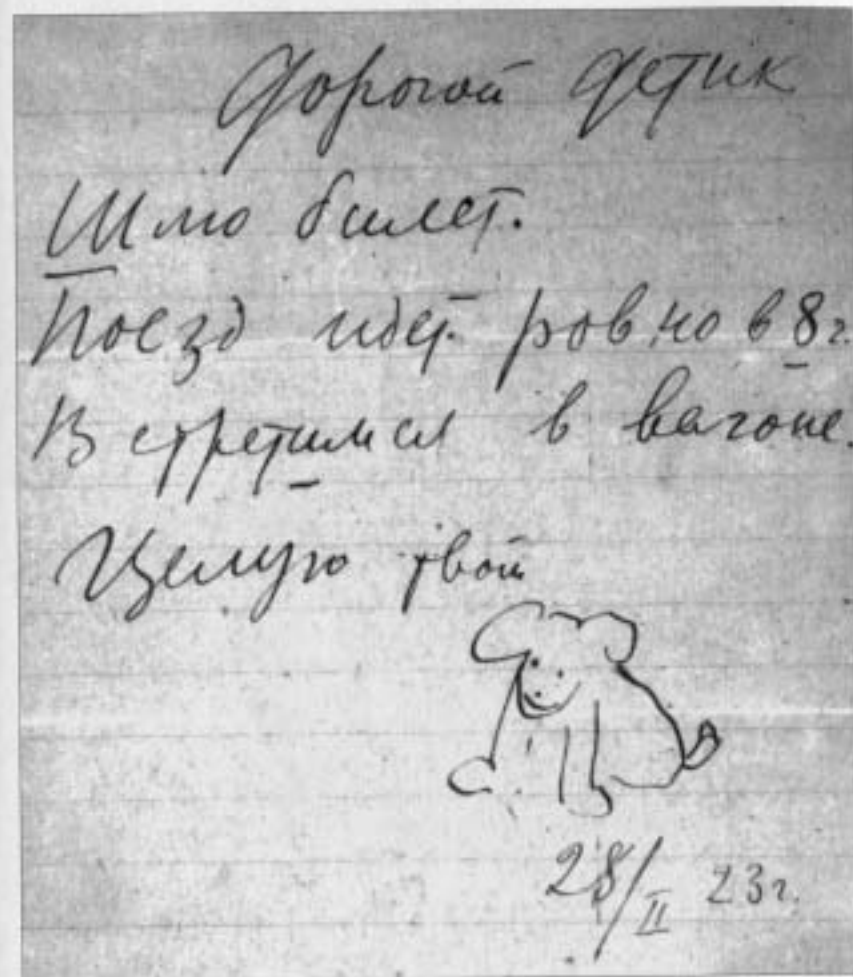 Дорогой Детик
Шлю билет.
Поезд идет ровно в 8 ч.
Встретимся в вагоне.
Целую твой
28/II 23г.